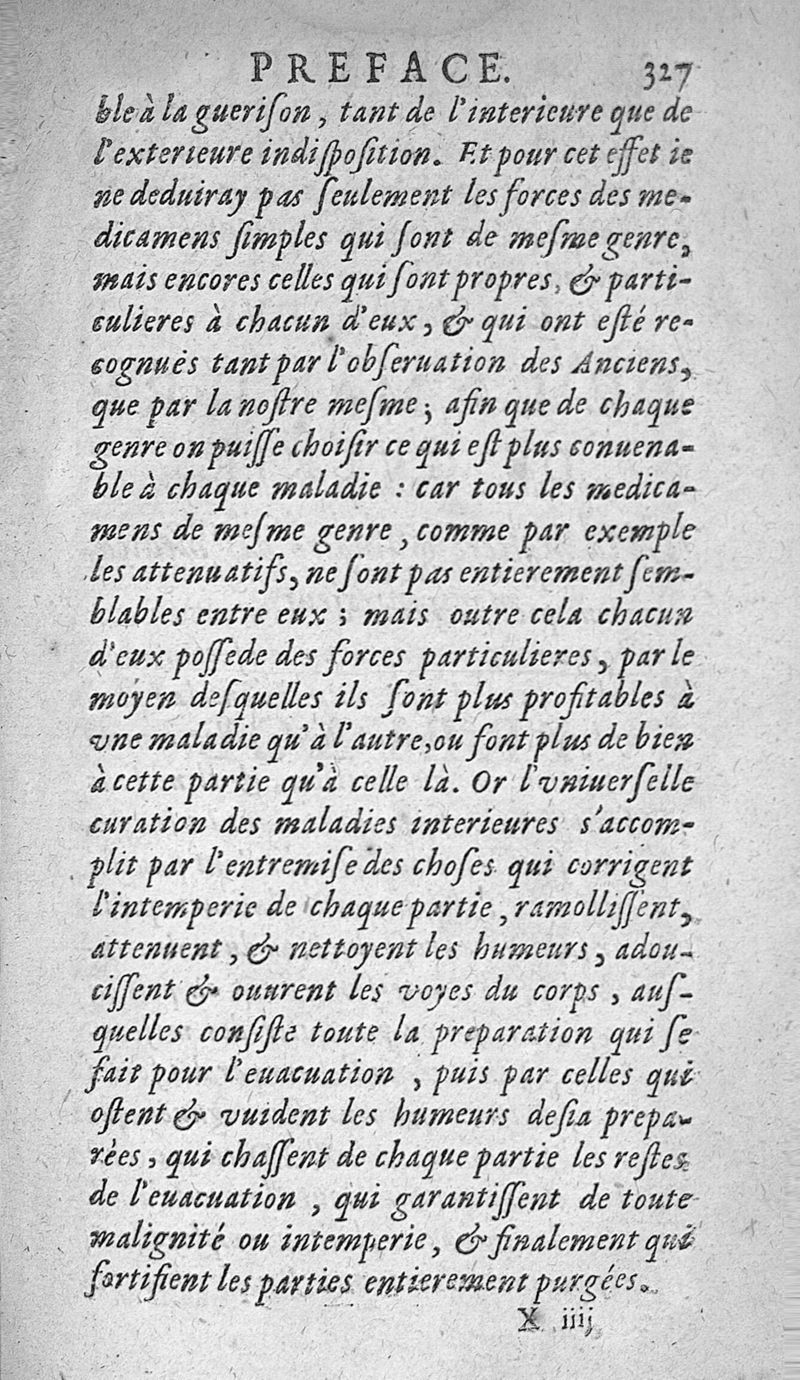 PREFACE. 327
ble à la gueriſon, tant de l'interieure que de
l'exterieure indiſpoſition. Et pour cet effet ie
ne deduiray pas ſeulement les forces des me-
dicamens ſimples qui ſont de meſme genre,
mais encores celles qui ſont propres, & parti-
culieres à chacun d'eux, & qui ont eſté re-
cognuës tant par l'obſeruation des Anciens,
que par la noſtre meſme; afin que de chaque
genre on puiſſe choiſir ce qui eſt plus conuena-
ble à chaque maladie : car tous les medica-
mens de meſme genre, comme par exemple
les attenuatifs, ne ſont pas entierement ſem-
blables entre eux ; mais outre cela chacun
d'eux poſſede des forces particulieres, par le
moyen deſquelles ils ſont plus profitables à
vne maladie qu'à l'autre, ou font plus de bien
à cette partie qu'à celle là. Or l'vniuerſelle
curation des maladies interieures s'accom-
plit par l'entremiſe des choſes qui corrigent
l'intemperie de chaque partie, ramolliſſent,
attenuent, & nettoyent les humeurs, adou-
ciſſent & ouurent les voyes du corps, auſ-
quelles conſiſte toute la preparation qui ſe
fait pour l'euacuation, puis par celles qui
oſtent & vuident les humeurs deſia prepa-
rées, qui chaſſent de chaque partie les reſtes
de l'euacuation, qui garantiſſent de toute
malignité ou intemperie, & finalement qui
fortifient les parties entierement purgées.
X iiij